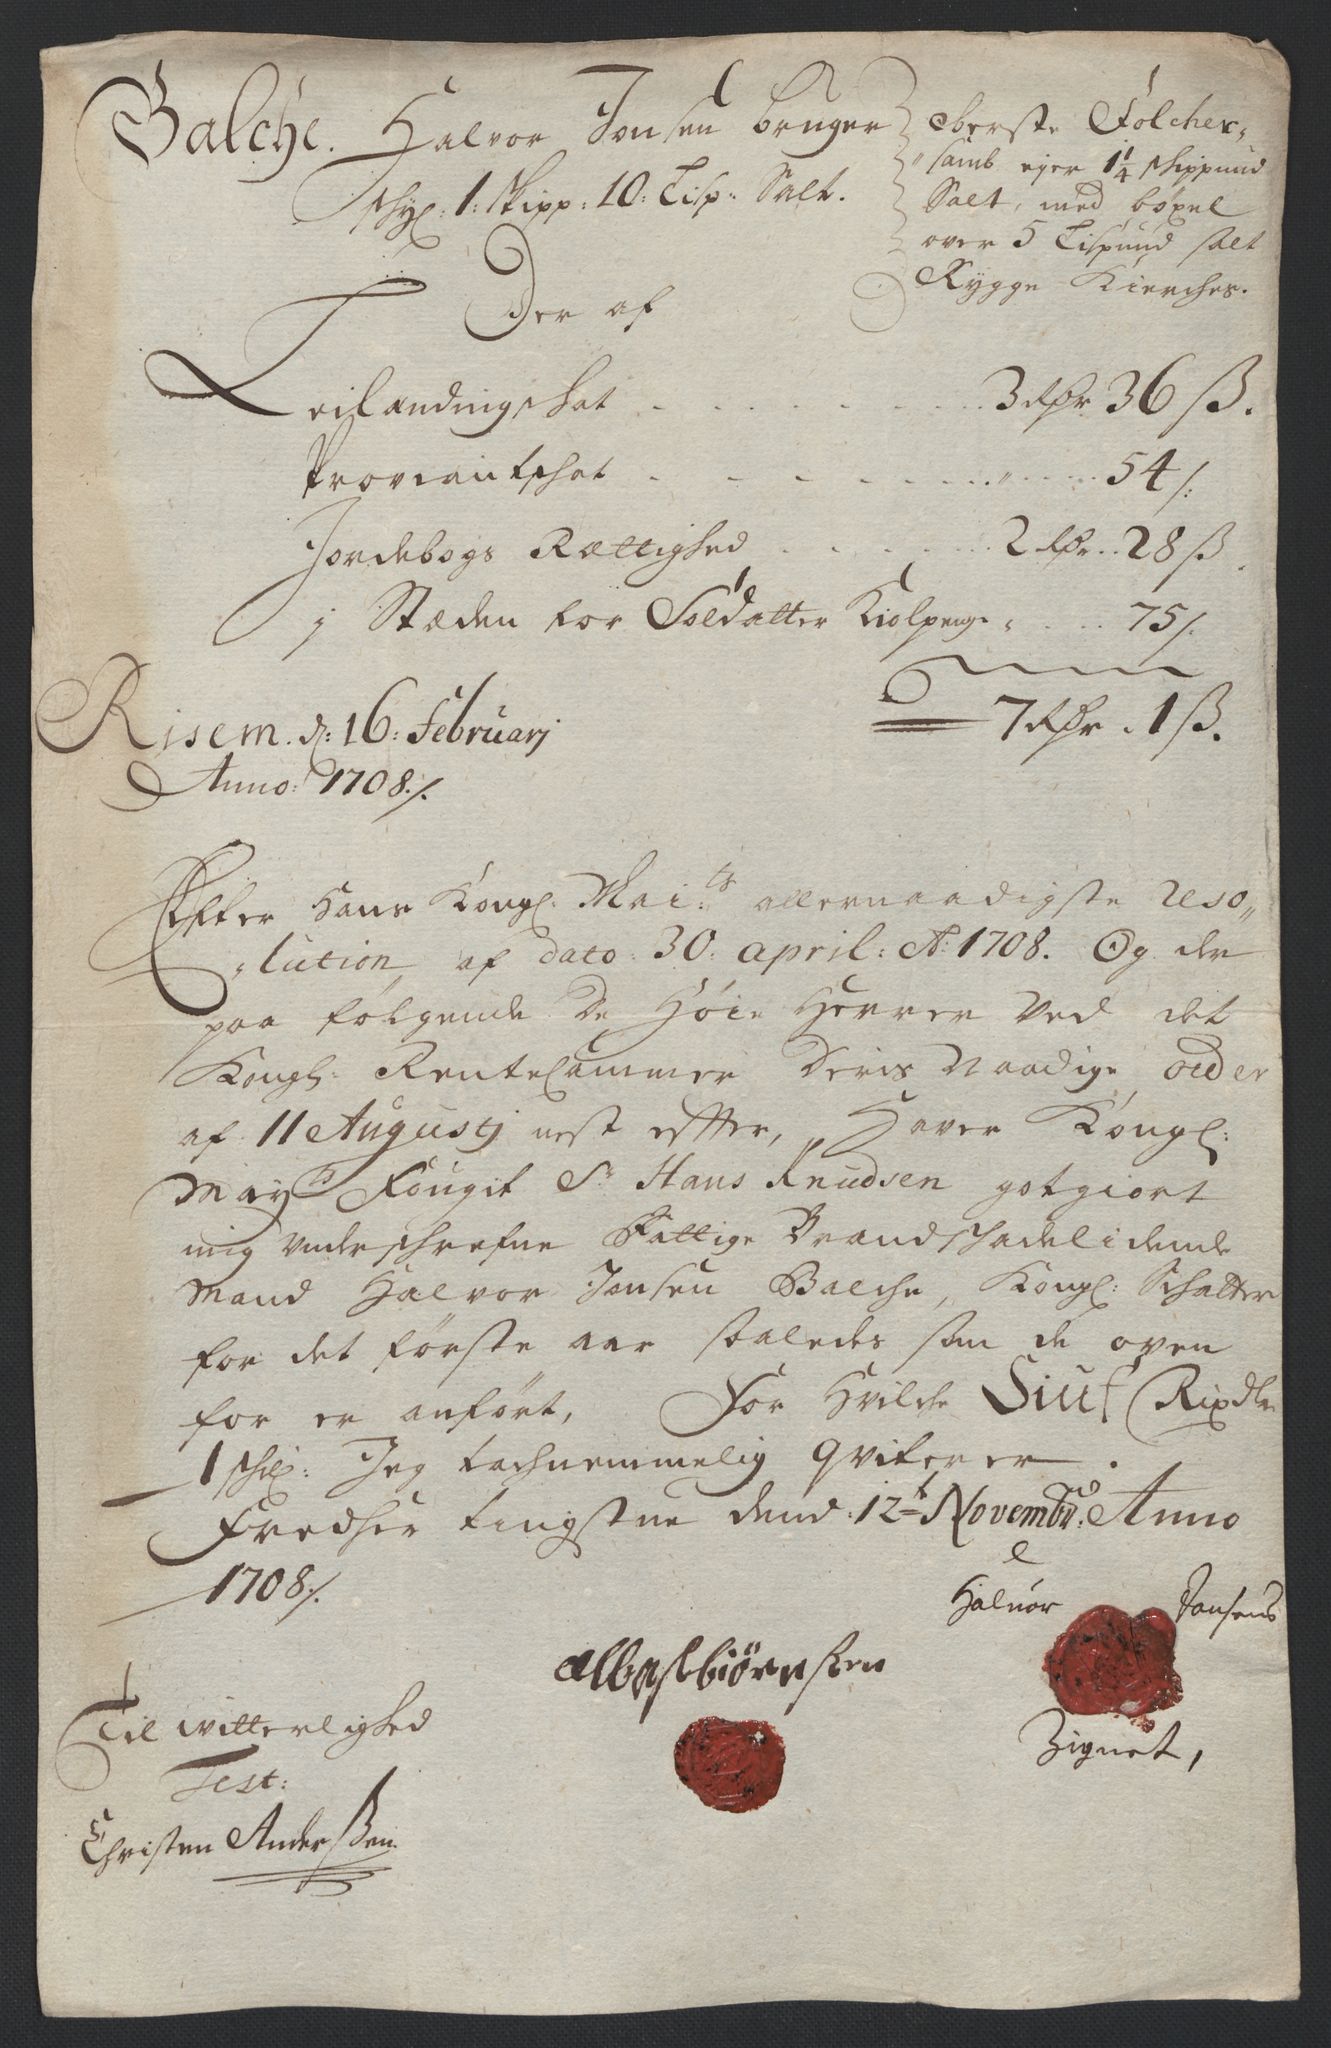 Balche. Halvor Jonsen bruger
schyl: 1: skipp: 10: Lisp: Salt.
oberste Folcher„
„samb ejer 1 1/4 schippund
Salt, med böxel
over 5 Lispund salt
Rygge Kierches.
Der af
Leilændingschat . . . . . . . . . 3 Rdr 36 ß.
Proviantschat . . . . . . . . „ . . . 54 /:
Jordebogs Rættighed . . . . . . 2 Rdr . . 28 ß.
j Stæden for Soldatter Kiolpenge „ . . . 75 /.
7 Rdr . 1 ß.
Risem. d: 16: Februarj
Anno: 1708 ./.
Effter Hans Kongl: Mai:ts allernaadigste reso„
„lution af dato: 30: april: A: 1708. Og der
paa fölgende De Höie Herrer Ved det
Kongl: RenteCammer Deris Naadige order
af 11 Augustj nest effter, Haver Kongl:
May:ts Fougit Sr Hans Knudsen gotgiort
mig underschrefne Fattige Brandschadelidende
Mand Halvor Jonsen Balche, Kongl: Schatter
for det förste aar saaledes som de oven
for er anfört, For Hvilche Siuf Rixdlr
1 schil: Jeg tachnemmelig qviterer .
Tingstue dend: 12te Novembr: Anno
1708 ./.
Haluor Jonsens
Zignet,
Til witterlighed
Test:
Christen Anderßen.